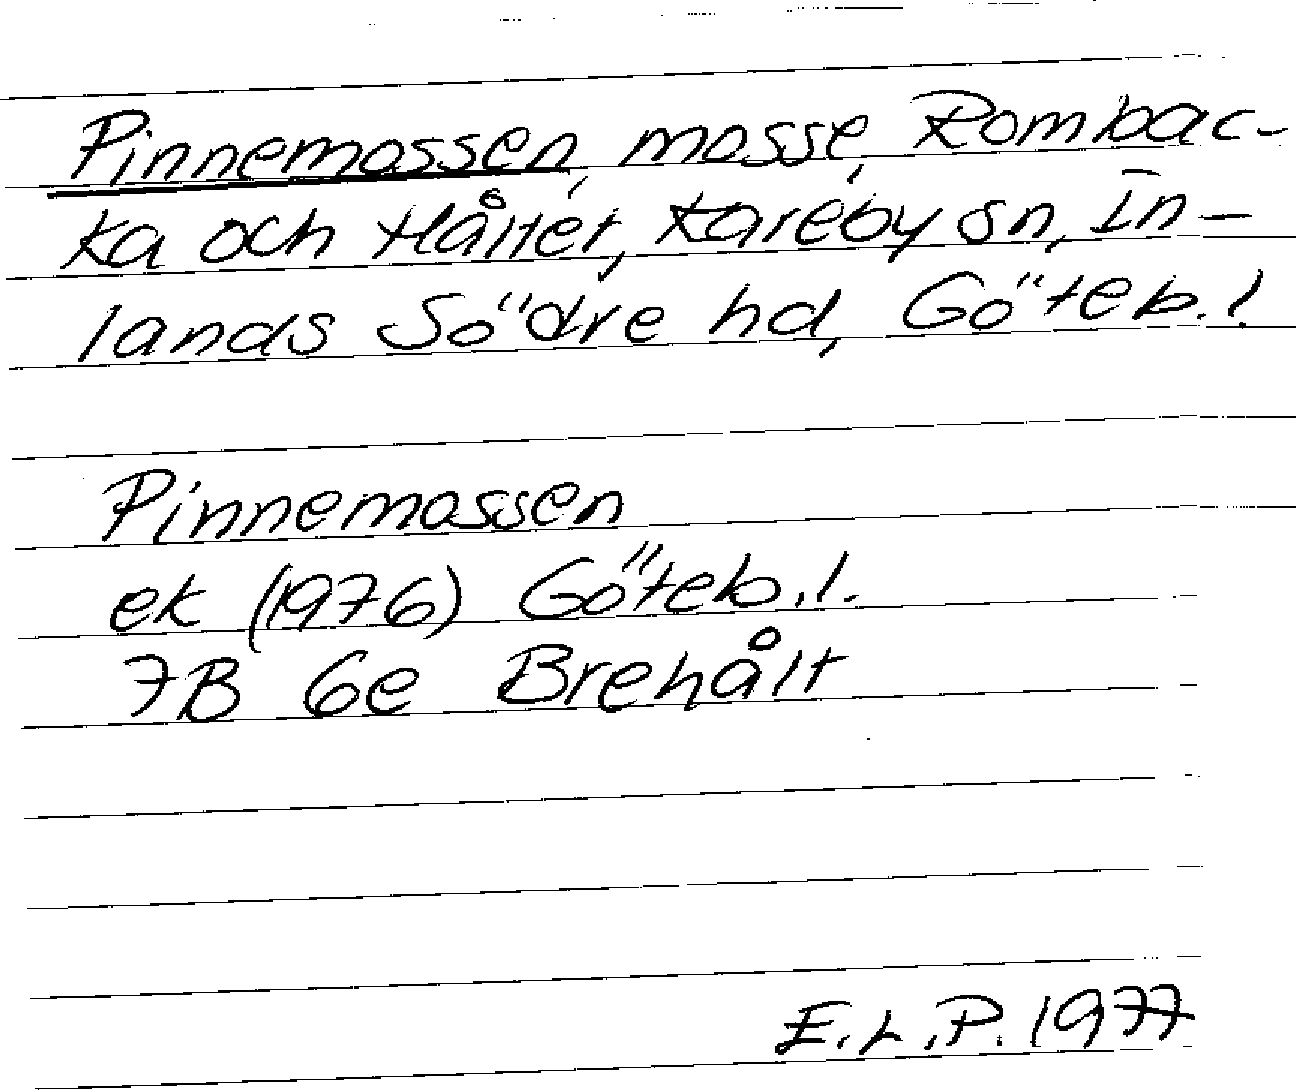 Pinnemossen, mosse, Rombac-
ka och Hålter, Kareby sn, In-
lands Södre hd, Göteb.l.
Pinnemossen
ek (1976) Göteb.l.
7B 6e Brehålt
E.L.P. 1977